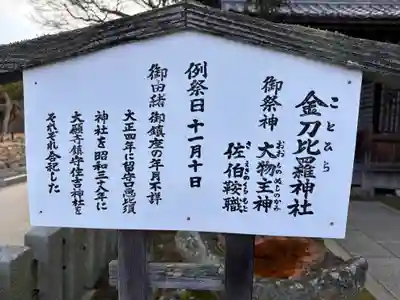 金刀比羅神社
ことひら
御祭神 大物主神
おおものぬしのかみ
佐伯鞍職
さえきくらもと
例祭日 十一月十日
御由緒 御鎮座の年月不詳
大正四年に留守呂恵比須
神社を昭和三八年に
大願寺鎮守住吉神社を
それぞれ合祀した